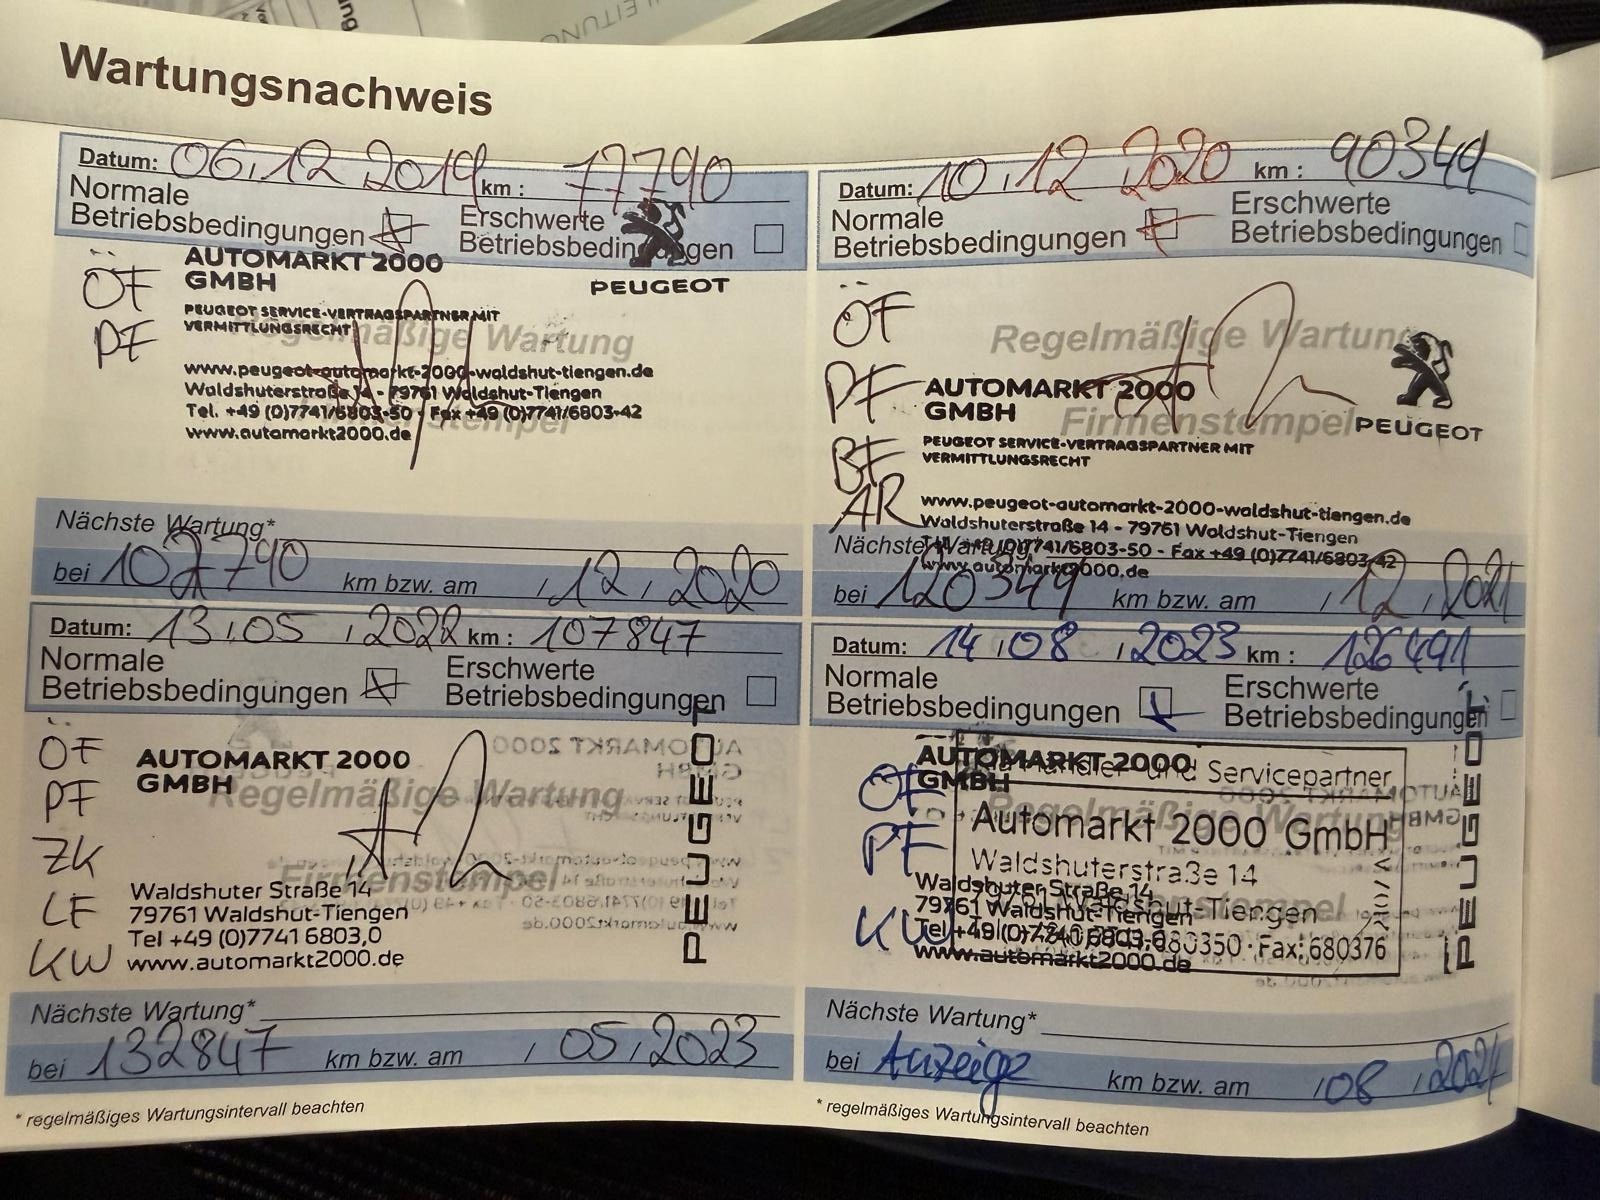 Wartungsnachweis
Datum: 06.12.2019 km: 77790
Normale Betriebsbedingungen
Erschwerte Betriebsbedingungen
AUTOMARKT 2000
GMBH
PEUGEOT
ÖF
PF
PEUGEOT SERVICE-VERTRAGSPARTNER MIT
VERMITTLUNGSRECHT
Regelmäßige Wartung
www.peugeot-automarkt-2000-waldshut-tiengen.de
Waldshuterstraße 14 - 79761 Waldshut-Tiengen
Tel. +49 (0)7741/6803-50 - Fax +49 (0)7741/6803-42
Firmenstempel
www.automarkt2000.de
Nächste Wartung*
bei 102790 km bzw. am , 12 , 2020
Datum: 10.12.2020 km: 90349
Normale Betriebsbedingungen
Erschwerte Betriebsbedingungen
ÖF
PF
BF
AR
Regelmäßige Wartung
AUTOMARKT 2000
GMBH
Firmenstempel
PEUGEOT
PEUGEOT SERVICE-VERTRAGSPARTNER MIT
VERMITTLUNGSRECHT
www.peugeot-automarkt-2000-waldshut-tiengen.de
Waldshuterstraße 14 - 79761 Waldshut-Tiengen
Tel. +49 (0)7741/6803-50 - Fax +49 (0)7741/6803-42
www.automarkt2000.de
Nächste Wartung*
bei 120349 km bzw. am , 12 , 2021
Datum: 13.05.2022 km: 107847
Normale Betriebsbedingungen
Erschwerte Betriebsbedingungen
ÖF
PF
ZK
LF
KW
AUTOMARKT 2000
GMBH
Regelmäßige Wartung
Firmenstempel
Waldshuter Straße 14
79761 Waldshut-Tiengen
Tel +49 (0)7741 6803,0
www.automarkt2000.de
PEUGEOT
Nächste Wartung*
bei 132847 km bzw. am , 05 , 2023
* regelmäßiges Wartungsintervall beachten
Datum: 14.08.2023 km: 126491
Normale Betriebsbedingungen
Erschwerte Betriebsbedingungen
ÖF
PF
KW
AUTOMARKT 2000
GMBH
und Servicepartner
Regelmäßige Wartung
Automarkt 2000 GmbH
Waldshuterstraße 14
Waldshuter Straße 14
79761 Waldshut-Tiengen
www.automarkt2000.de
Fax: 680376
PEUGEOT
Nächste Wartung*
bei Anzeige km bzw. am , 08 , 2024
* regelmäßiges Wartungsintervall beachten